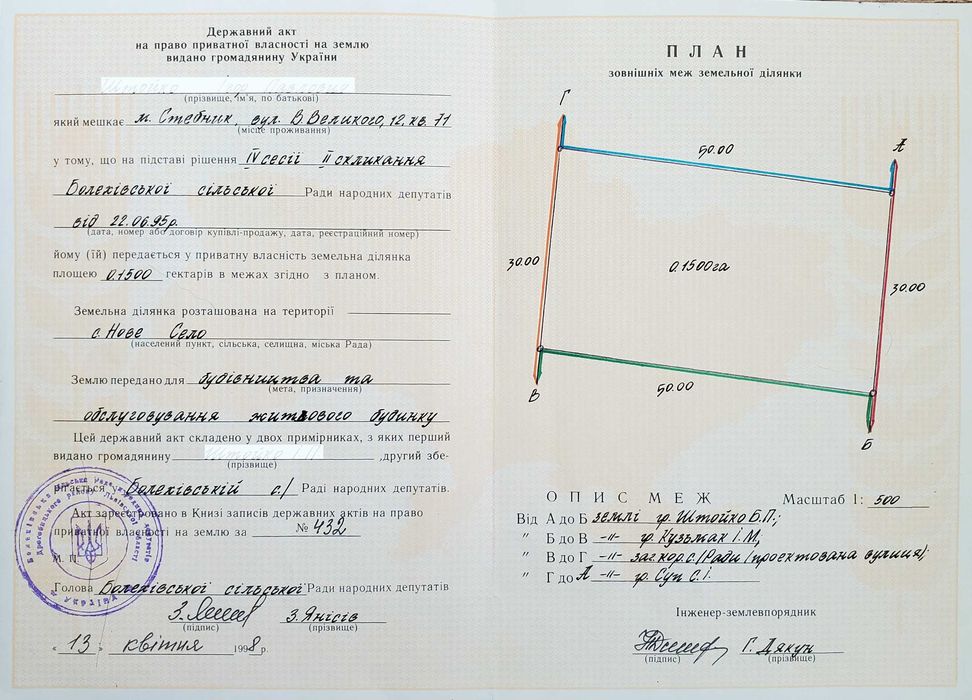 Державний акт
на право приватної власності на землю
видано громадянину України
(прізвище, ім'я, по батькові)
який мешкає м. Стебник, вул. В Великого, 12, кв. 71
(місце проживання)
у тому, що на підставі рішення IV сесії II скликання
Болехівської сільської Ради народних депутатів
від 22.06.95р.
(дата, номер або договір купівлі-продажу, дата, реєстраційний номер)
йому (їй) передається у приватну власність земельна ділянка
площею 0.1500 гектарів в межах згідно з планом.
Земельна ділянка розташована на території
с. Нове Село
(населений пункт, сільська, селищна, міська Рада)
Землю передано для будівництва та
(мета, призначення)
обслуговування житлового будинку
Цей державний акт складено у двох примірниках, з яких перший
видано громадянину ,другий збе-
(прізвище)
рігається у Болехівській с/ Раді народних депутатів.
Акт зареєстровано в Книзі записів державних актів на право
приватної власності на землю за № 432
М. П.
Голова Болехівської сільської Ради народних депутатів
З. Янісів
(підпис) (прізвище)
" 13 " квітня 1998 р.
УКРАЇНА
ПЛАН
зовнішніх меж земельної ділянки
Г
50.00
А
30.00
0.1500га
30.00
50.00
В
Б
ОПИС МЕЖ Масштаб 1: 500
Від А до Б землі гр. Штойко Б.П.;
" Б до В -"- гр. Кузьмак І.М,
" В до Г -"- заг.кор. с/Ради /проектована вулиця/;
" Г до А -"- гр. Суп С.І.
Інженер-землевпорядник
Г. Дякун
(підпис) (прізвище)